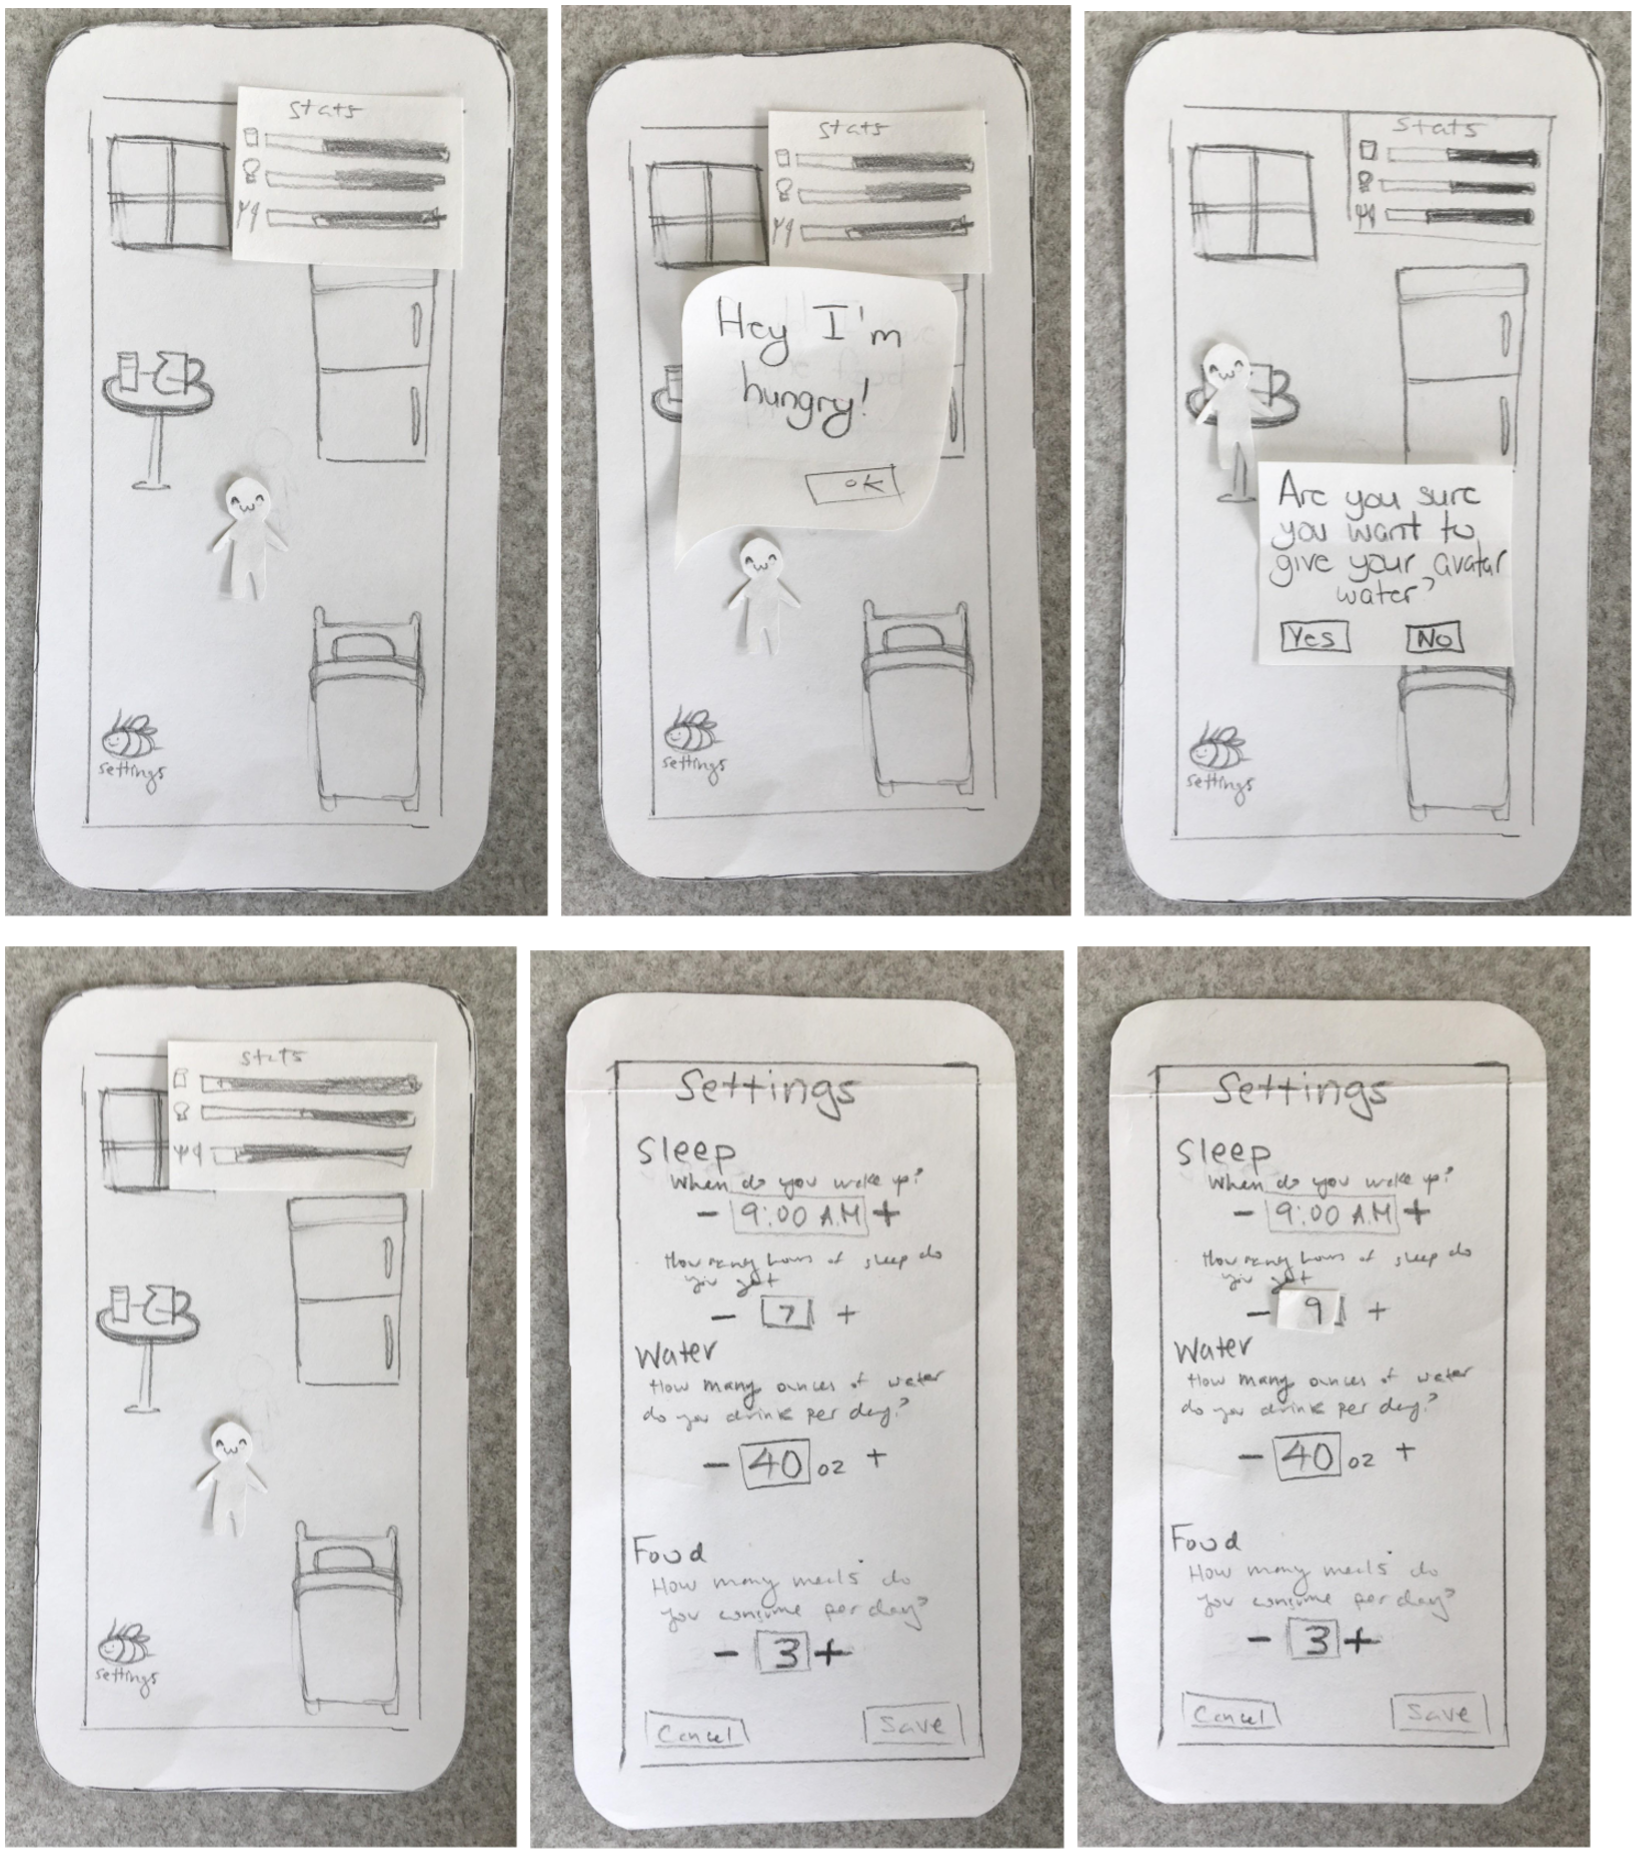 stats
settings
stats
Hey I'm
hungry!
OK
settings
stats
Are you sure
you want to
give your avatar
water?
Yes No
settings
stats
settings
Settings
Sleep
When do you wake up?
- 9:00 A.M +
How many hours of sleep do
you get
- 7 +
Water
How many ounces of water
do you drink per day?
- 40 oz +
Food
How many meals do
you consume per day?
- 3 +
Cancel Save
Settings
Sleep
When do you wake up?
- 9:00 A.M +
How many hours of sleep do
you get
- 9 +
Water
How many ounces of water
do you drink per day?
- 40 oz +
Food
How many meals do
you consume per day?
- 3 +
Cancel Save